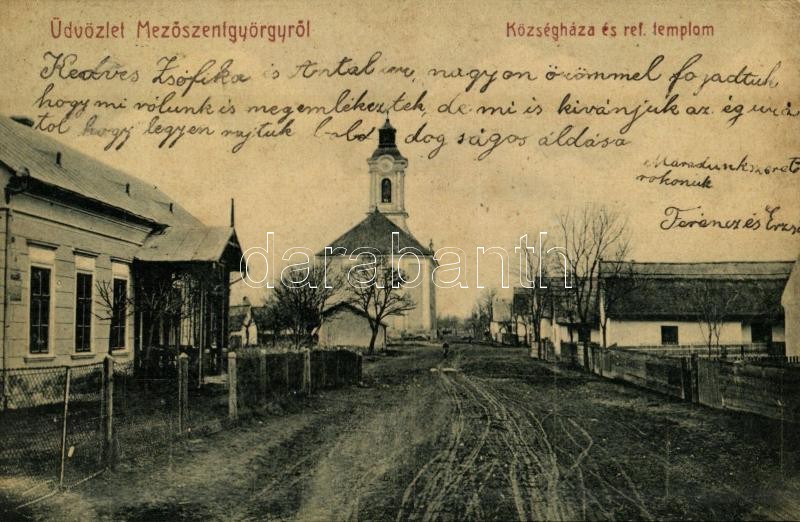 Üdvözlet Mezőszentgyörgyről
Községháza és ref. templom
Kedves Zsófika is Antal, nagyon örömmel fogadtuk
hogy mi rólunk is megemlékeztek, de mi is kivánjuk az ég urá
tol hogy legyen rajtuk dog ságos áldása
Maradunk szerető
rokonuk
Ferencz és Erzsi
darabanth